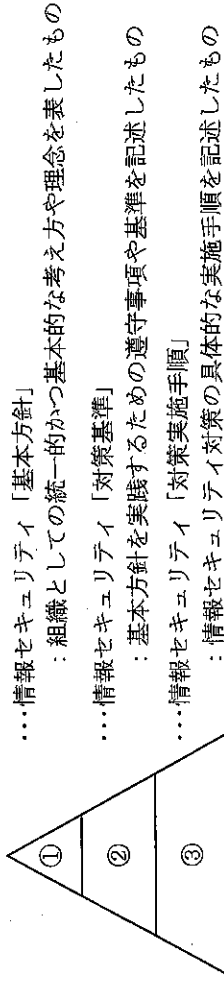 ①
…情報セキュリティ「基本方針」
：組織としての統一的かつ基本的な考え方や理念を表したもの
②
…情報セキュリティ「対策基準」
：基本方針を実践するための遵守事項や基準を記述したもの
③
…情報セキュリティ「対策実施手順」
：情報セキュリティ対策の具体的な実施手順を記述したもの